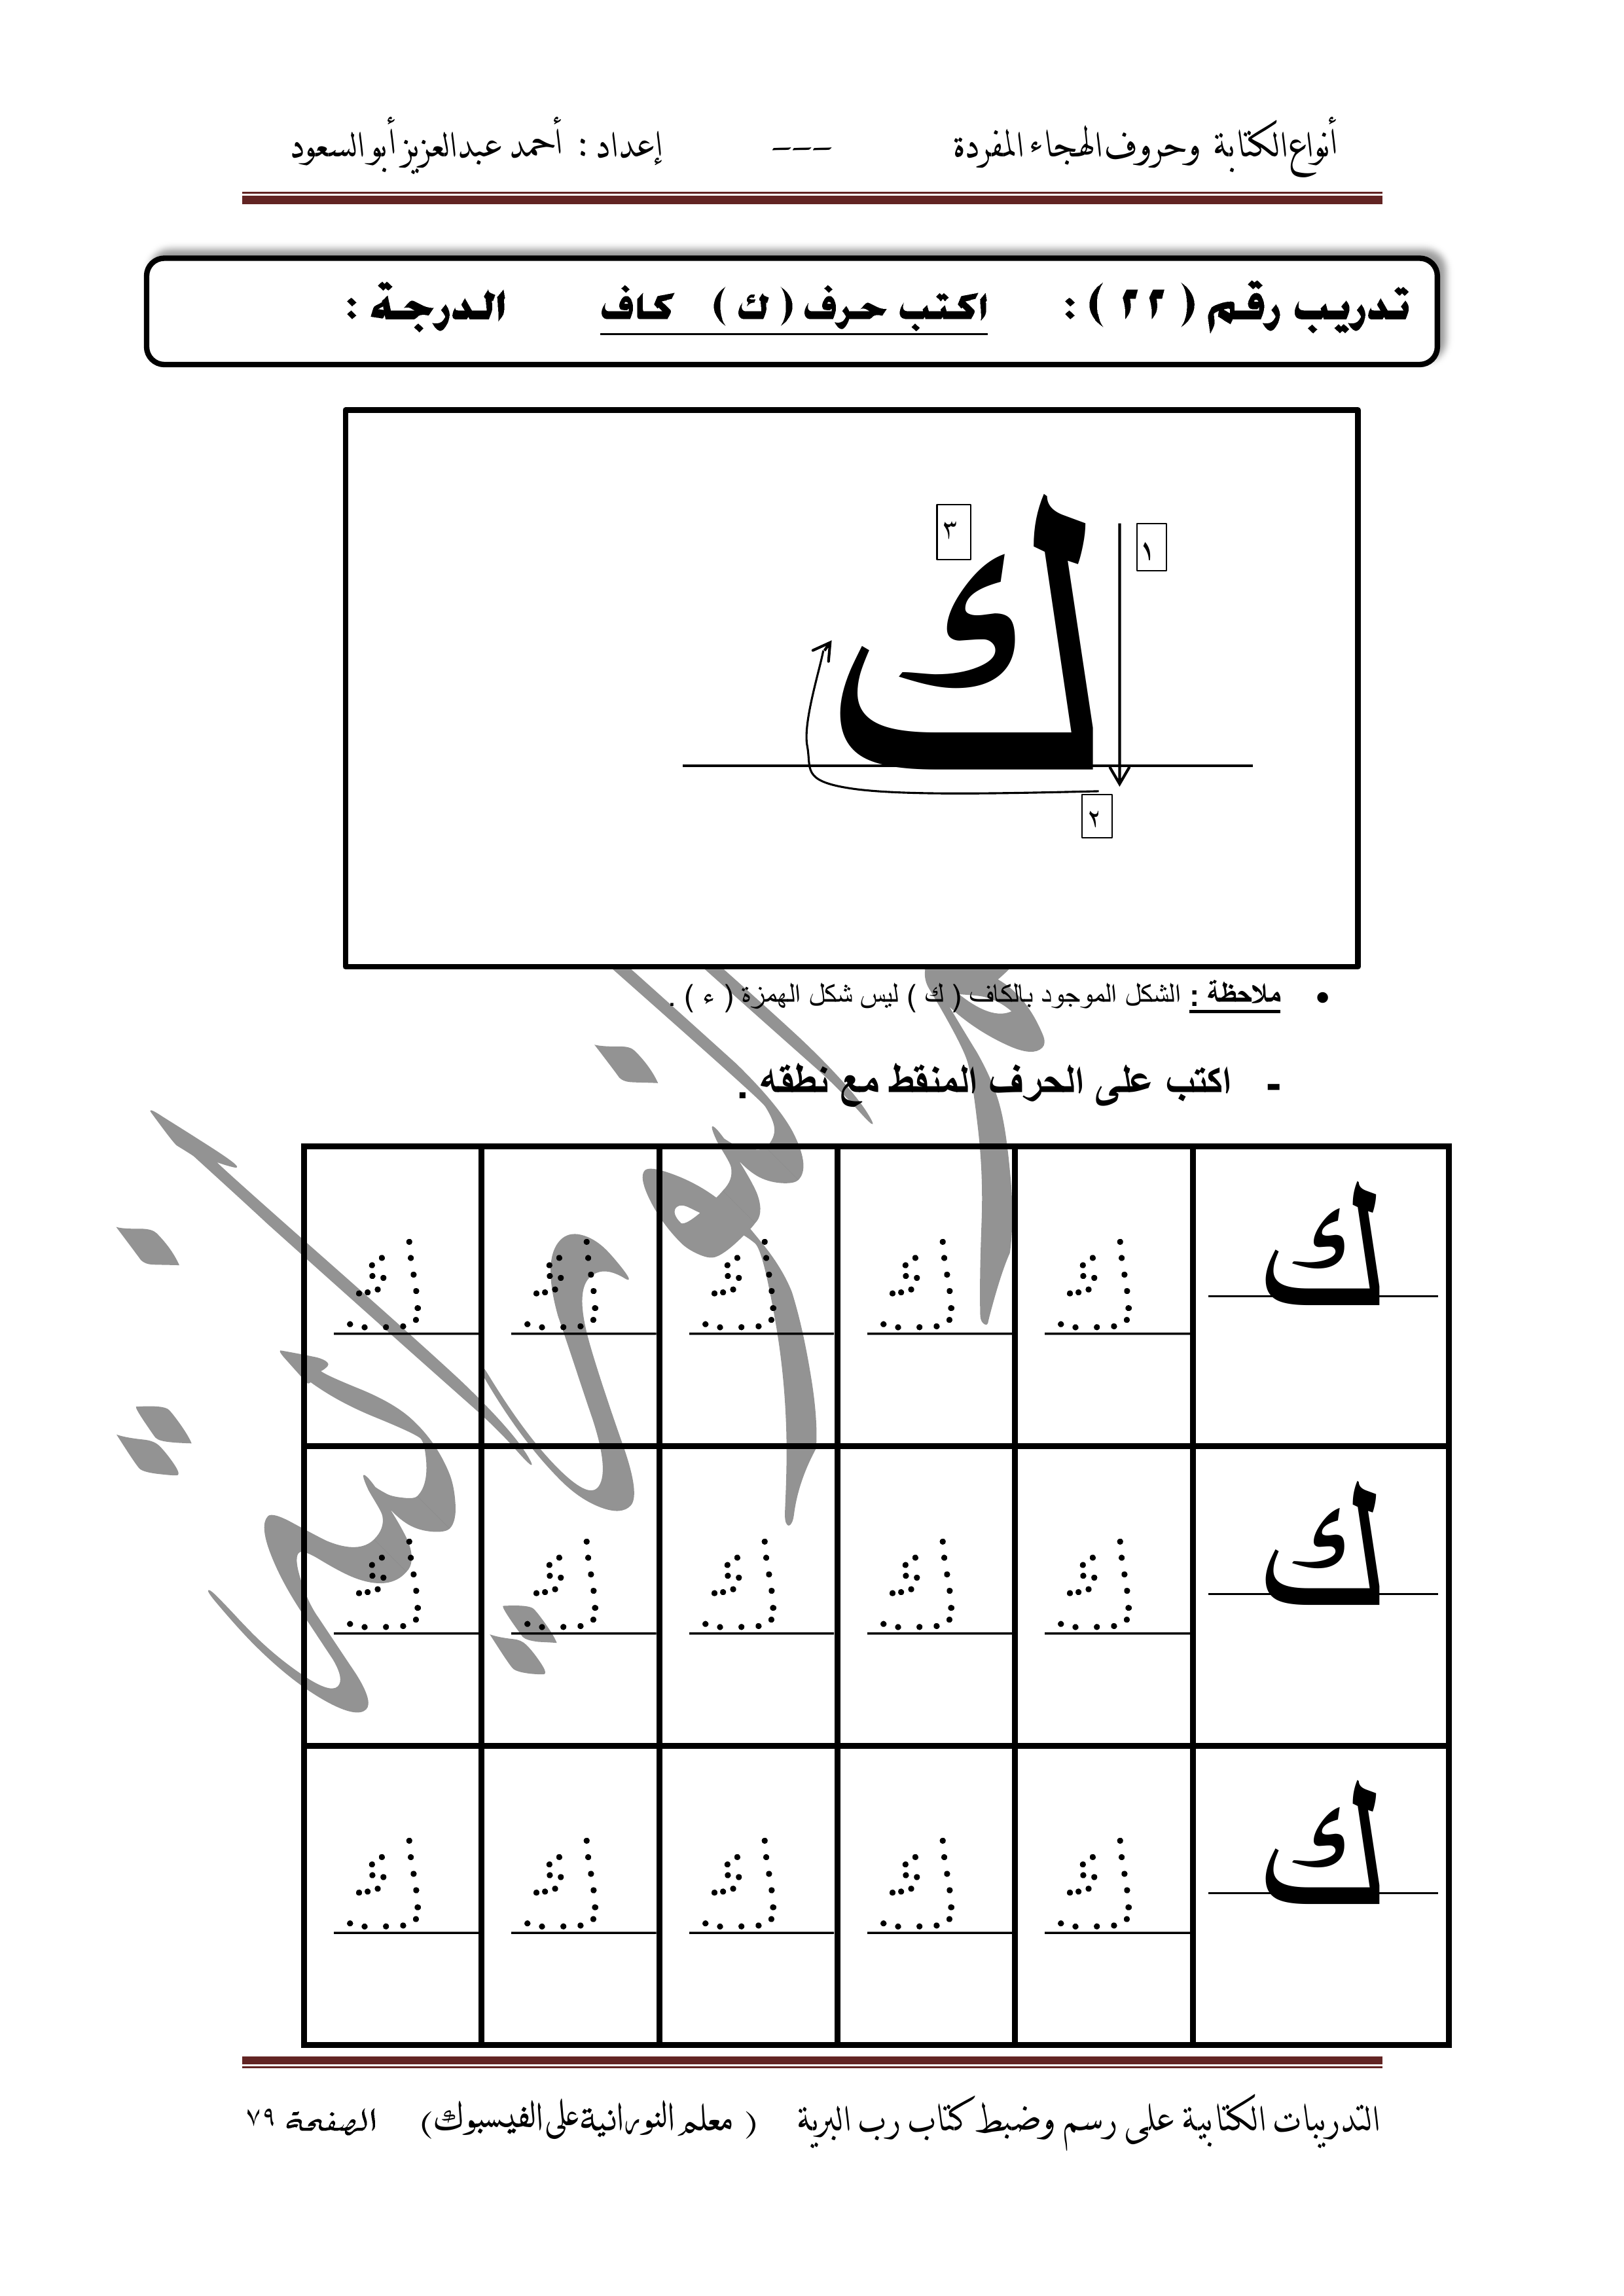 أنواع الكتابة وحروف الهجاء المفردة --- إعداد : أحمد عبدالعزيز أبو السعود
تدريب رقم ( ٢٢ ) : اكتب حرف ( ك ) كاف الدرجة :
٣
١
ك
٢
• ملاحظة : الشكل الموجود بالكاف ( ك ) ليس شكل الهمزة ( ء ) .
- اكتب على الحرف المنقط مع نطقه .
ك ك ك ك ك ك
ك ك ك ك ك ك
ك ك ك ك ك ك
التدريبات الكتابية على رسم وضبط كتاب رب البرية ( معلم النورانية على الفيسبوك) الصفحة ٧٩